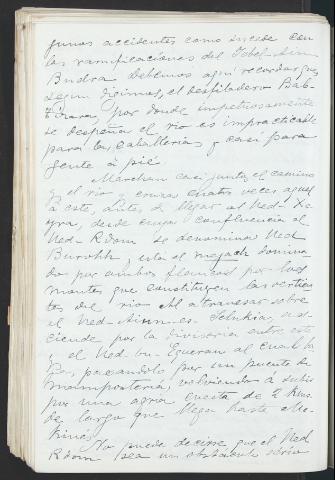 gunos accidentes como sucede con
las ramificaciones del Yebel-Ain
Budra debemos aquí recordar que
segun digimos, el desfiladero Bab-
Tisara, por donde impetuosamente
se despeña el río es impracticable
para las caballerías y casi para
gente á pié.
Marchan casi juntos el camino
y el río y cruza cuatro veces aquel
á este, antes de llegar al Ued-
gra, desde cuya confluencia al
Ued-Rdom se denomina Ued
Burohh, está el mejach domina
do por ambos flancos por los
montes que constituyen las vertien
tes del río. Al atravesar sobre
el Ued-Ain-es- as-
ciende por la divisoria entre este
y el Ued-bu- al cual ba
ja, pasandolo por un puente de
mampostería, volviendo á subir
por una agria cuesta de 2 kms.
de larga que llega hasta Me-
kinez.
No puede decirse que el Ued
Rdom sea un obstáculo sério